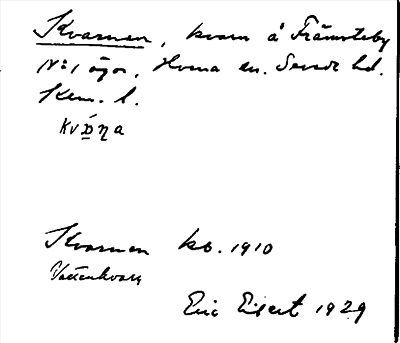 Kvarnen, kvarn å Främsteby
Nº 1 ägor, Hvena sn. Sevede hd.
Kalm. l.
Kvarnen kb. 1910
Vattenkvarn
Eric Elgert 1929